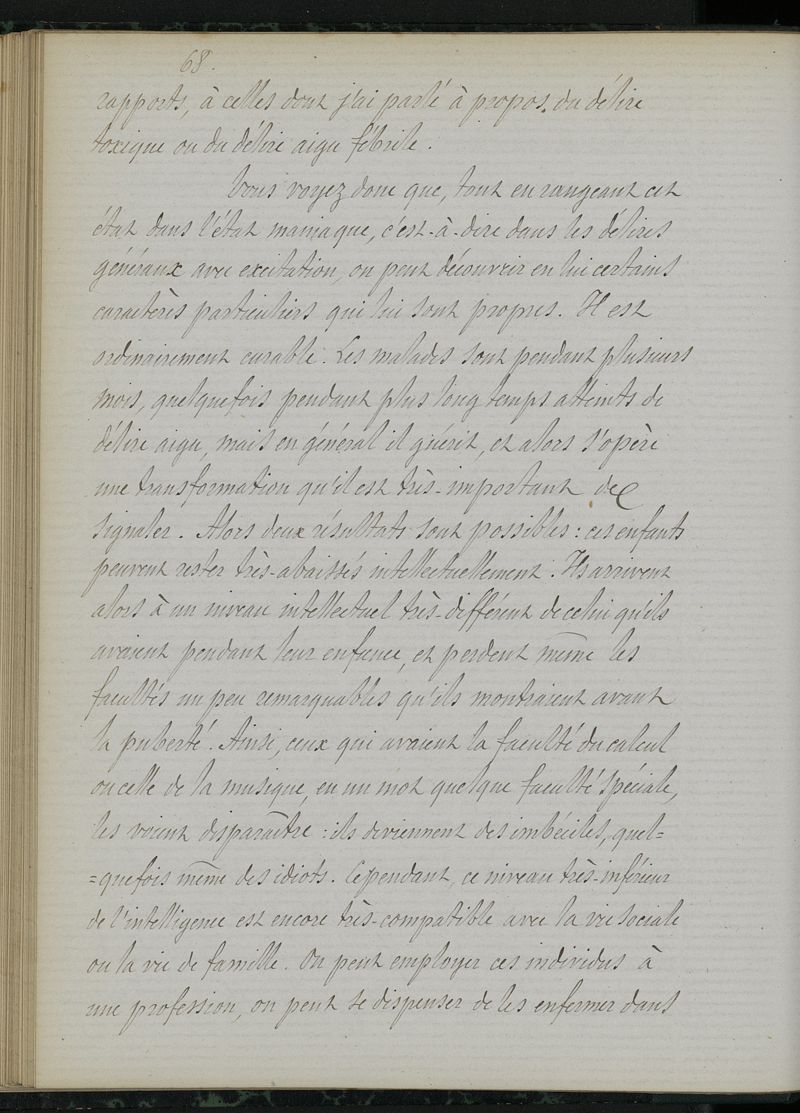 68.
rapports, à celles dont j'ai parlé à propos du délire
toxique ou du délire aigu fébrile.
Vous voyez donc que, tout en rangeant cet
état dans l'état maniaque, c'est-à-dire dans les délires
généraux avec excitation, on peut découvrir en lui certains
caractères particuliers qui lui sont propres. Il est
ordinairement curable. Les malades sont pendant plusieurs
mois, quelquefois pendant plus longtemps atteints de
délire aigu, mais en général il guérit, et alors s'opère
une transformation qu'il est très-important de
signaler. Alors deux résultats sont possibles : ces enfants
peuvent rester très-abaissés intellectuellement. Ils arrivent
alors à un niveau intellectuel très-différent de celui qu'ils
avaient pendant leur enfance, et perdent même les
facultés un peu remarquables qu'ils montraient avant
la puberté. Ainsi, ceux qui avaient la faculté du calcul
ou celle de la musique, en un mot quelque faculté spéciale,
les voient disparaître : ils deviennent des imbéciles, quel=
=quefois même des idiots. Cependant, ce niveau très-inférieur
de l'intelligence est encore très-compatible avec la vie sociale
ou la vie de famille. On peut employer ces individus à
une profession, on peut se dispenser de les enfermer dans